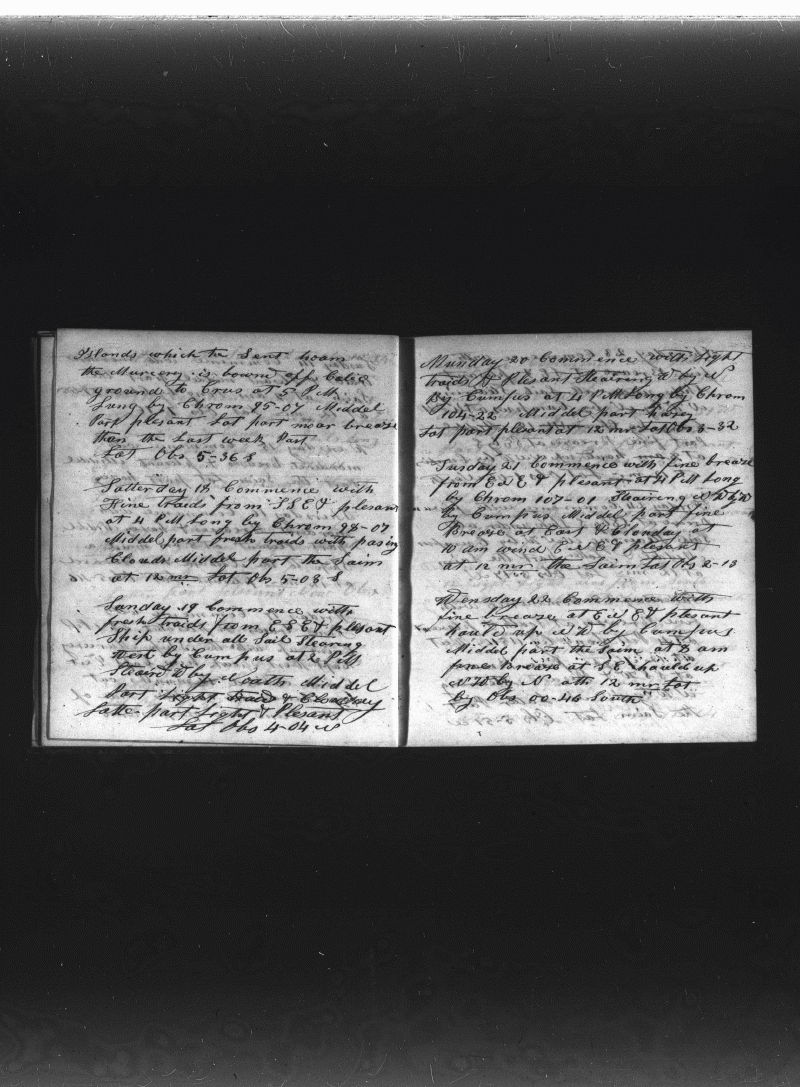 Islands which he Sent hoam
the Murcery is bownd off
ground to Crus at 5 P M
Lung by Chrom 95-07 Middel
Part plesent Lat part moar breaze
than the Last week Part
Lat Obs 5-36 S
Satterday 18 Commence with
Fine traids from S S E & plesant
at 4 P M Long by Chrom 98-07
Middel part fresh traids with pasing
Clouds Middel part the Saim
at 12 mr Lat Obs 5-03 S
Sunday 19 Commence with
fresh traids from E S E & plesant
Ship under all Sail Stearing
West by Cumpus at 2 P M
Staird W by Noath Middel
Part Light traids & Cloudey
Lake part Light & Plesant
Lat Obs 4-04
Munday 20 Commence with light
traids & Plesant Stearing W by N
By Cumpus at 4 P M Long by Chrom
104-22 Middel part
Lat part plesant at 12 mr Lat Obs 3-32
Tusday 21 Commence with fine breaze
from E N E & plesant at 4 P M Long
by Chrom 107-01 Stairing N W by W
by Cumpus Middel part fine
Breaze at East & Clouday at
10 am wind E N E & plesant
at 12 mr the Saim Lat Obs 2-13
Wensday 22 Commence with
fine breaze at E N E & plesant
hauld up N W by Cumpus
Middel part the Saim at 8 am
fine Breaze at S E hauld up
N W by N at 12 mr Lat
by Obs 00-46 South